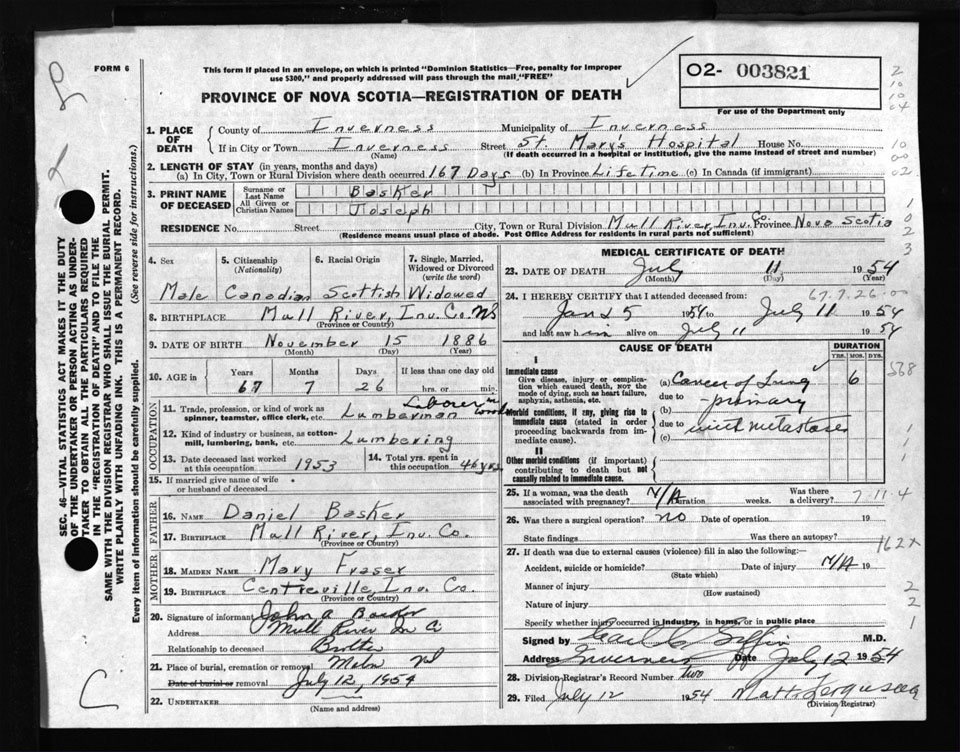 FORM 6
This form if placed in an envelope, on which is printed "Dominion Statistics—Free, penalty for improper
use $300," and properly addressed will pass through the mail "FREE"
PROVINCE OF NOVA SCOTIA—REGISTRATION OF DEATH
O2- 003821
For use of the Department only
1. PLACE OF DEATH
County of Inverness Municipality of Inverness
If in City or Town Inverness Street St. Mary's Hospital House No.
(Name) (If death occurred in a hospital or institution, give the name instead of street and number)
2. LENGTH OF STAY (in years, months and days)
(a) In City, Town or Rural Division where death occurred 167 Days (b) In Province Lifetime (c) In Canada (if immigrant)
3. PRINT NAME OF DECEASED
Surname or Last Name Basker
All Given or Christian Names Joseph
RESIDENCE No. Street City, Town or Rural Division Mull River, Inv. Co. Province Nova Scotia
(Residence means usual place of abode. Post Office Address for residents in rural parts not sufficient)
4. Sex 5. Citizenship (Nationality) 6. Racial Origin 7. Single, Married, Widowed or Divorced (write the word)
Male Canadian Scottish Widowed
8. BIRTHPLACE Mull River, Inv. Co. NS
(Province or Country)
9. DATE OF BIRTH November 15 1886
(Month) (Day) (Year)
10. AGE in Years Months Days If less than one day old
67 7 26 hrs. or min.
OCCUPATION
11. Trade, profession, or kind of work as spinner, teamster, office clerk, etc. Laborer in woods Lumberman
12. Kind of industry or business, as cotton-mill, lumbering, bank, etc. Lumbering
13. Date deceased last worked at this occupation 1953 14. Total yrs. spent in this occupation 46 yrs
15. If married give name of wife or husband of deceased
FATHER
16. NAME Daniel Basker
17. BIRTHPLACE Mull River, Inv. Co.
(Province or Country)
MOTHER
18. MAIDEN NAME Mary Fraser
19. BIRTHPLACE Centreville, Inv. Co.
(Province or Country)
20. Signature of informant John A Basker
Address Mull River Inv Co
Relationship to deceased Brother
21. Place of burial, cremation or removal Mabou NS
Date of burial or removal July 12, 1954
22. UNDERTAKER
(Name and address)
MEDICAL CERTIFICATE OF DEATH
23. DATE OF DEATH July 11 1954
(Month) (Day)
24. I HEREBY CERTIFY that I attended deceased from: 67.7.26.00
Jan 25 1954 to July 11 1954
and last saw h im alive on July 11 1954
CAUSE OF DEATH DURATION
YRS. MOS. DYS.
I
Immediate cause
Give disease, injury or complication which caused death, not the mode of dying, such as heart failure, asphyxia, asthenia, etc.
(a) Cancer of Lung 6
due to - primary
Morbid conditions, if any, giving rise to immediate cause (stated in order proceeding backwards from immediate cause).
due to with metastases
(c)
II
Other morbid conditions (if important) contributing to death but not causally related to immediate cause.
25. If a woman, was the death associated with pregnancy? N/A Duration weeks. Was there a delivery? 7-11 4
26. Was there a surgical operation? no Date of operation 19
State findings Was there an autopsy?
162x
27. If death was due to external causes (violence) fill in also the following:—
Accident, suicide or homicide? Date of injury N/A 19
(State which)
Manner of injury
(How sustained)
Nature of injury
Specify whether injury occurred in industry, in home, or in public place
Signed by M.D.
Address Inverness Date July 12 1954
28. Division Registrar's Record Number two
29. Filed July 12 1954
(Division Registrar)
SEC. 46- VITAL STATISTICS ACT MAKES IT THE DUTY
OF THE UNDERTAKER OR PERSON ACTING AS UNDER-
TAKER TO OBTAIN ALL THE PARTICULARS REQUIRED
IN THE "REGISTRATION OF DEATH" AND TO FILE THE
SAME WITH THE DIVISION REGISTRAR WHO SHALL ISSUE THE BURIAL PERMIT.
WRITE PLAINLY WITH UNFADING INK. THIS IS A PERMANENT RECORD.
Every item of information should be carefully supplied. (See reverse side for instructions.)